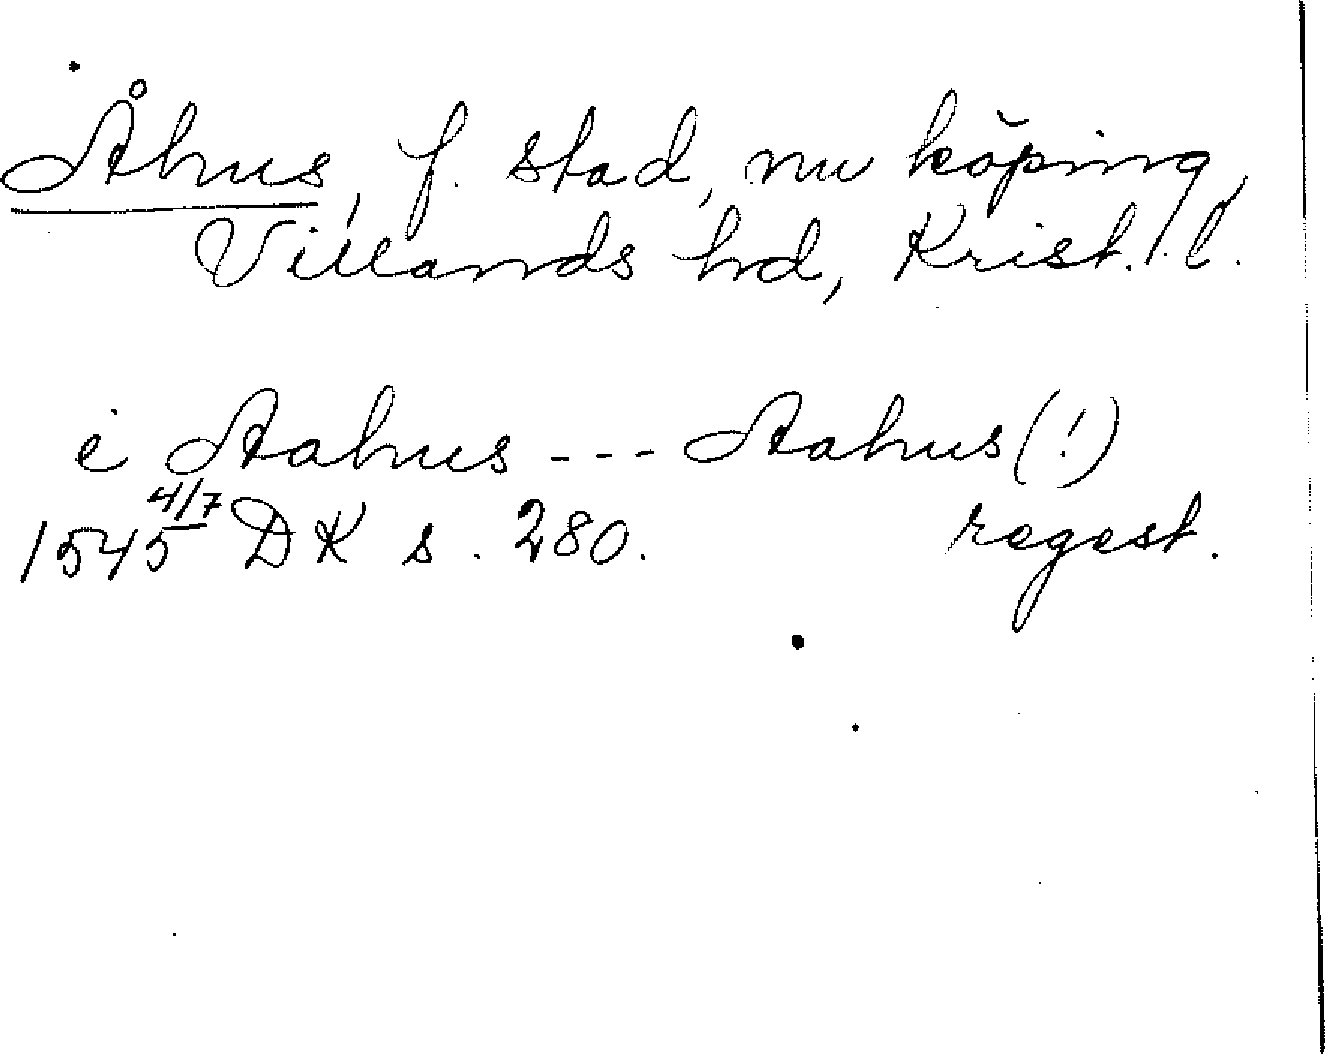 Åhus, f. stad, nu köping,
Villands hd, Krist. l.
i Aahus --- Aahus (!)
1545 4/7 DK s. 280. regest.